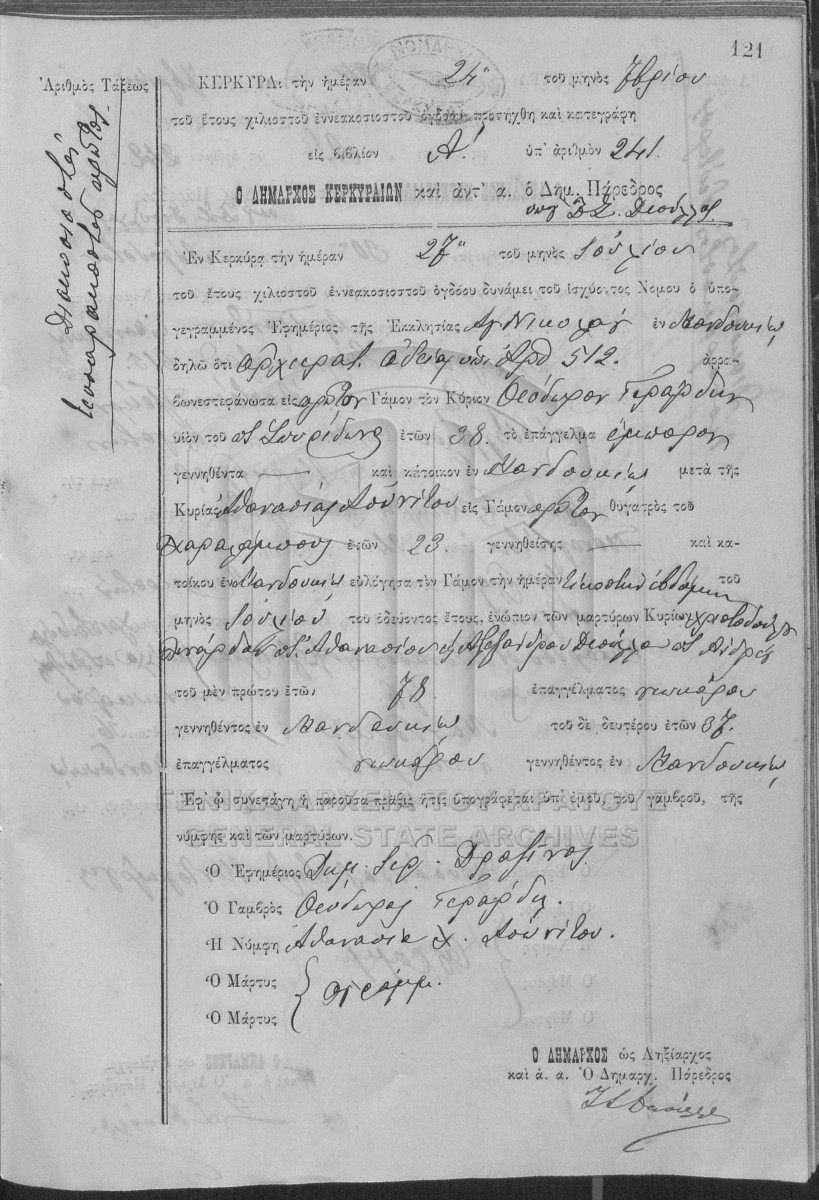 121
Ἀριθμὸς Τάξεως
Διακοσιοστὸς
τεσσαρακοστὸς πρῶτος.
ΚΕΡΚΥΡΑ: τὴν ἡμέραν 24ῃ τοῦ μηνὸς 7βρίου
τοῦ ἔτους χιλιοστοῦ ἐννεακοσιοστοῦ ὀγδόου προσήχθη καὶ κατεγράφη
εἰς βιβλίον Α΄ ὑπ᾽ ἀριθμὸν 241
Ο ΔΗΜΑΡΧΟΣ ΚΕΡΚΥΡΑΙΩΝ καὶ ἀντ᾽ α. ὁ Δημ. Πάρεδρος
Ἐν Κερκύρᾳ τὴν ἡμέραν 27ῃ τοῦ μηνὸς Ἰουλίου
τοῦ ἔτους χιλιοστοῦ ἐννεακοσιοστοῦ ὀγδόου δυνάμει τοῦ ἰσχύοντος Νόμου ὁ ὑπο-
γεγραμμένος Ἐφημέριος τῆς Ἐκκλησίας Αγ Νικολάου ἐν Μανδουκίῳ
δηλῶ ὅτι ἀρχιερατ. ἀδείᾳ ὑπ᾽ ἀρθ 512. ἀρρα-
βωνεστεφάνωσα εἰς πρῶτον Γάμον τὸν Κύριον Θεόδωρον Γεράρδην
υἱὸν τοῦ Σπυρίδωνα ἐτῶν 38. τὸ ἐπάγγελμα ἔμπορον
γεννηθέντα — καὶ κάτοικον ἐν Μανδουκίῳ μετὰ τῆς
Κυρίας Ἀθανασίας εἰς Γάμον πρῶτον θυγατρὸς τοῦ
Χαραλάμπους ἐτῶν 23. γεννηθείσης — καὶ κα-
τοίκου ἐν Μανδουκίῳ εὐλόγησα τὸν Γάμον τὴν ἡμέραν εἰκοστὴν ἑβδόμην τοῦ
μηνὸς Ἰουλίου τοῦ ὁδεύοντος ἔτους, ἐνώπιον τῶν μαρτύρων Κυρίων Χριστοδούλου
Ἀθανασίου Ἀλεξάνδρου Ἀνδρέα
τοῦ μὲν πρώτου ἐτῶν 78 ἐπαγγέλματος
γεννηθέντος ἐν Μανδουκίῳ τοῦ δὲ δευτέρου ἐτῶν 37.
ἐπαγγέλματος γεννηθέντος ἐν Μανδουκίῳ
Ἐφ᾽ ᾧ συνετάγη ἡ παροῦσα πρᾶξις ἥτις ὑπογράφεται ὑπ᾽ ἐμοῦ, τοῦ γαμβροῦ, τῆς
νύμφης καὶ τῶν μαρτύρων.
ΓΕΝΙΚΑ ΑΡΧΕΙΑ ΤΟΥ ΚΡΑΤΟΥΣ
GENERAL STATE ARCHIVES
Ὁ Ἐφημέριος Δημ. Σερ.
Ὁ Γαμβρὸς Θεόδωρος Γεράρδης.
Ἡ Νύμφη Ἀθανασία Χ.
Ὁ Μάρτυς
Ὁ Μάρτυς
Ο ΔΗΜΑΡΧΟΣ ὡς Ληξίαρχος
καὶ ἀ. α. Ὁ Δημαρχ. Πάρεδρος